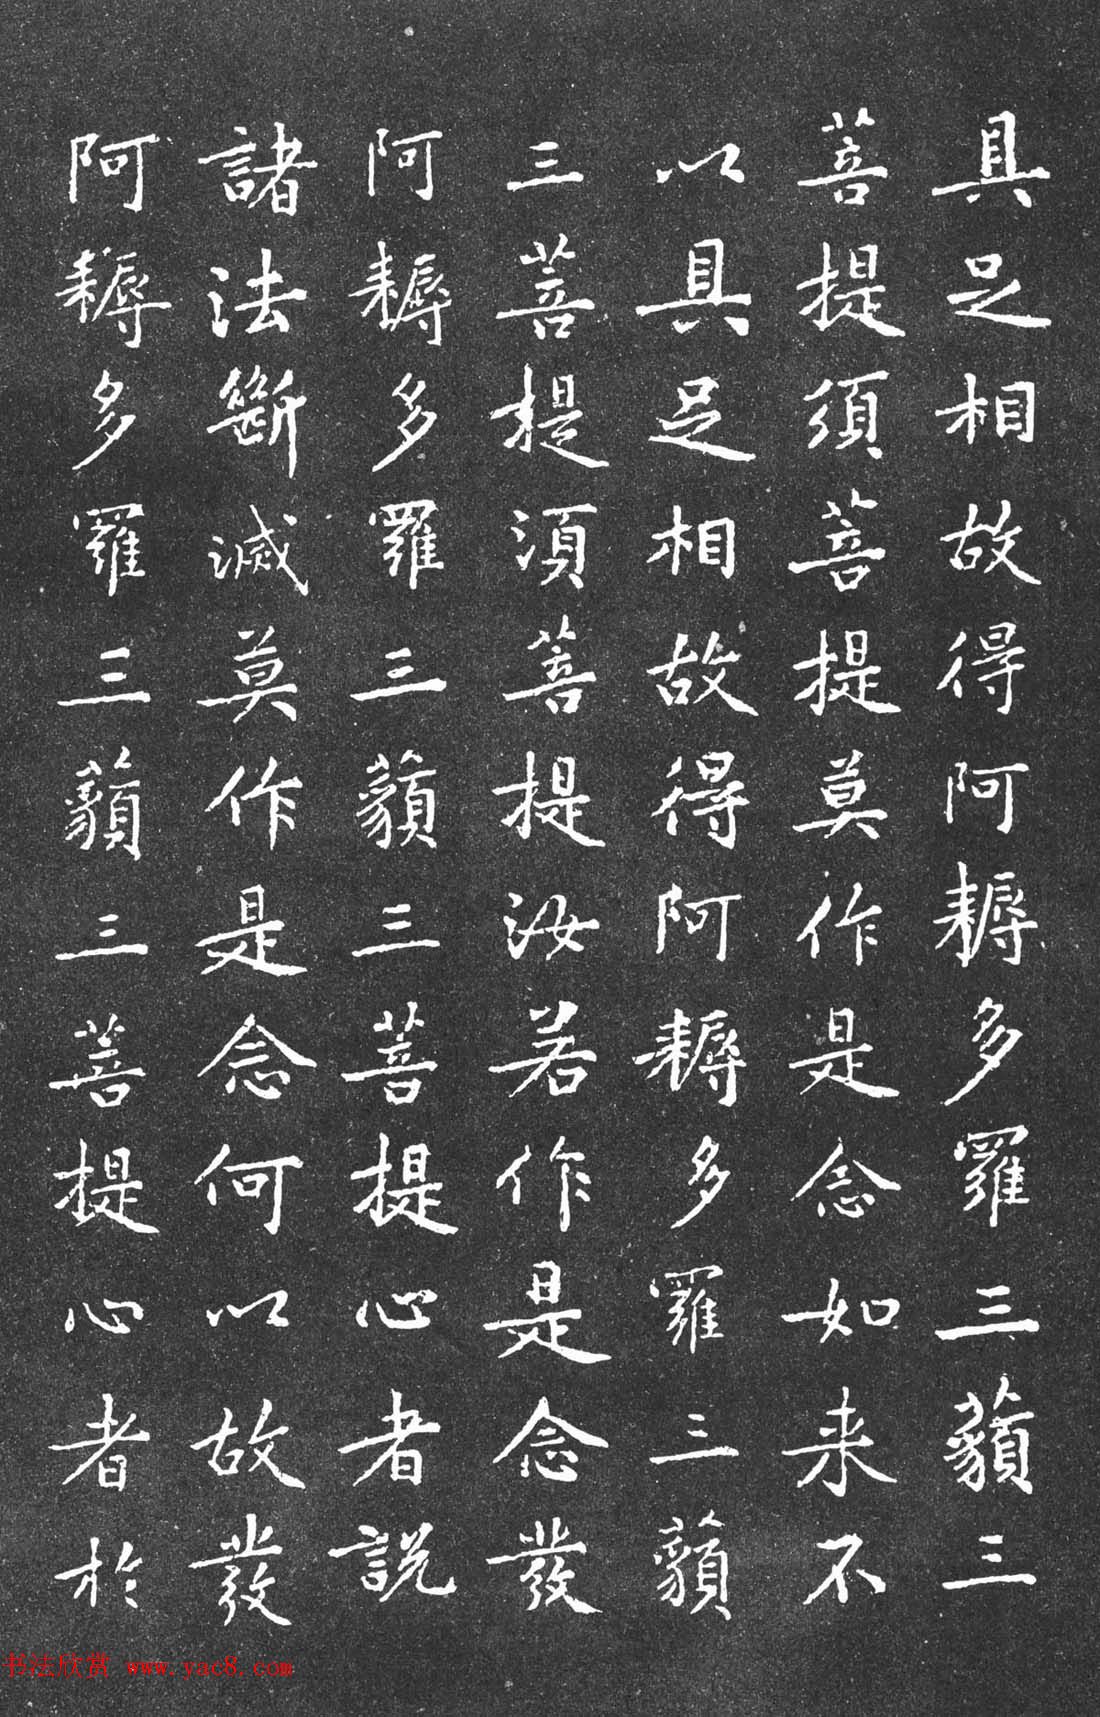 具足相故得阿耨多羅三藐三
菩提須菩提莫作是念如来不
以具足相故得阿耨多羅三藐
三菩提須菩提汝若作是念發
阿耨多羅三藐三菩提心者說
諸法斷滅莫作是念何以故發
阿耨多羅三藐三菩提心者於
书法欣赏 www.yac8.com